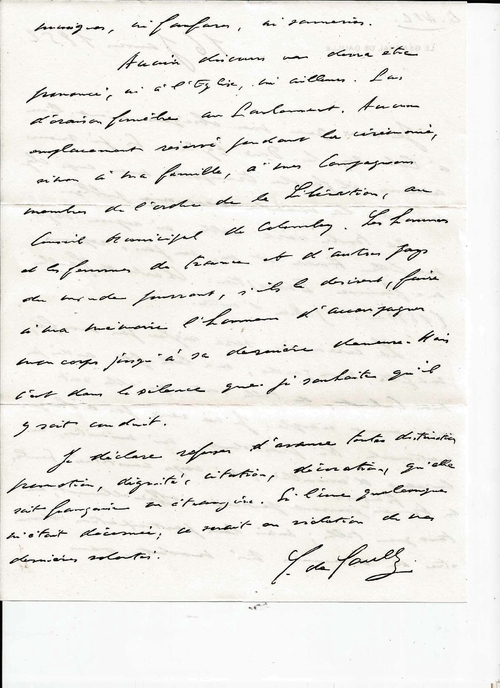 musiques, ni fanfares, ni sonneries.
Aucun discours ne devra être
prononcé, ni à l'Eglise, ni ailleurs. Pas
d'oraison funèbre au Parlement. Aucun
emplacement réservé pendant la cérémonie,
sinon à ma famille, à mes Compagnons
membres de l'ordre de la Libération, au
Conseil Municipal de Colombey. Les hommes
et les femmes de France et d'autres pays
du monde pourront, s'ils le désirent, faire
à ma mémoire l'honneur d'accompagner
mon corps jusqu'à sa dernière demeure. Mais
c'est dans le silence que je souhaite qu'il
y soit conduit.
Je déclare refuser d'avance toute distinction,
promotion, dignité, citation, décoration, qu'elle
soit française ou étrangère. Si l'une quelconque
m'était décernée, ce serait en violation de mes
dernières volontés.
C. de Gaulle